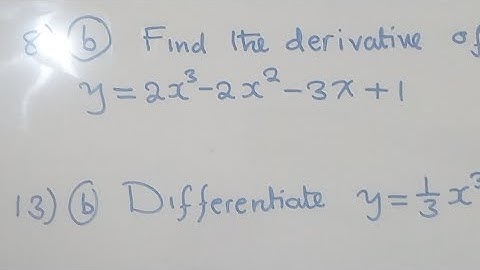 8) b Find the derivative of
y = 2x³ - 2x² - 3x + 1
13) b Differentiate y = 1/3 x³